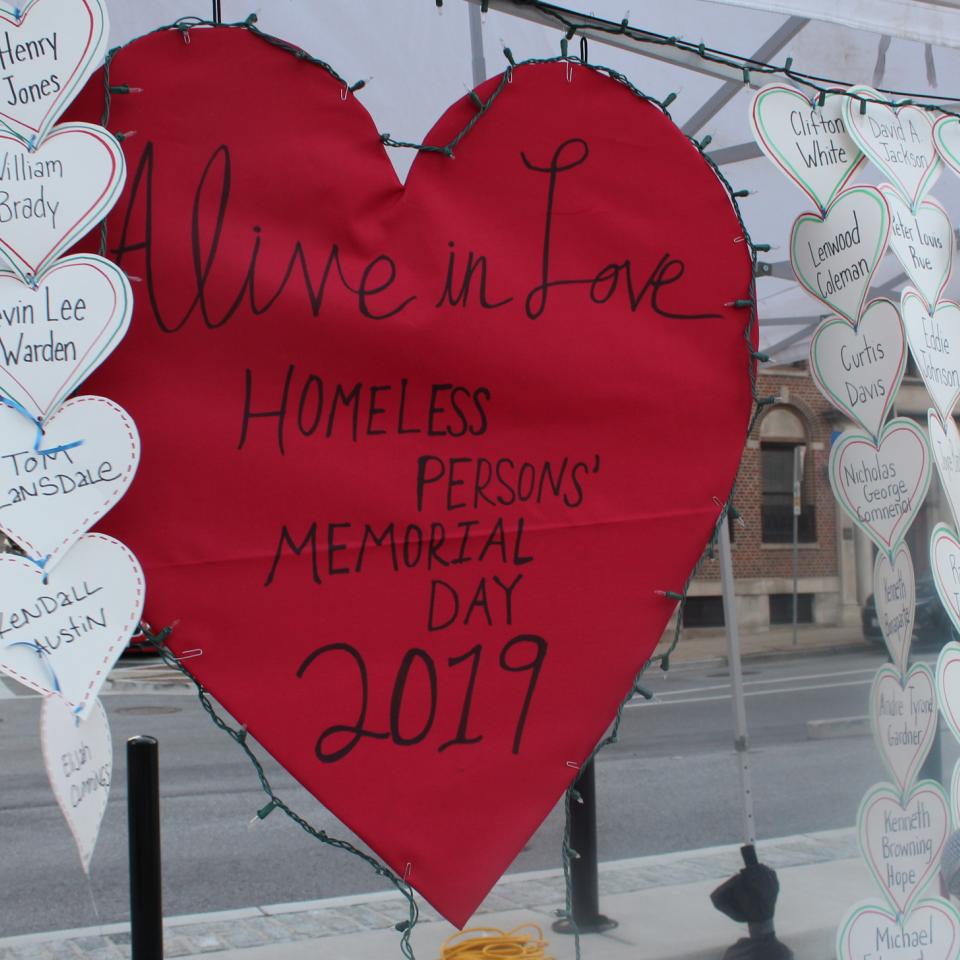 Henry
Jones
William
Brady
evin Lee
Warden
Tom
LANSDALE
KENDALL
AUSTIN
Elijah
Cummings
Alive in Love
HOMELESS
PERSONS'
MEMORIAL
DAY
2019
Clifton
White
Lenwood
Coleman
Curtis
Davis
Nicholas
George
Comnenor
Kenneth
Andre Tyrone
Gardner
Kenneth
Browning
Hope
Michael
David A
Jackson
Peter Louis
Eddie
Johnson